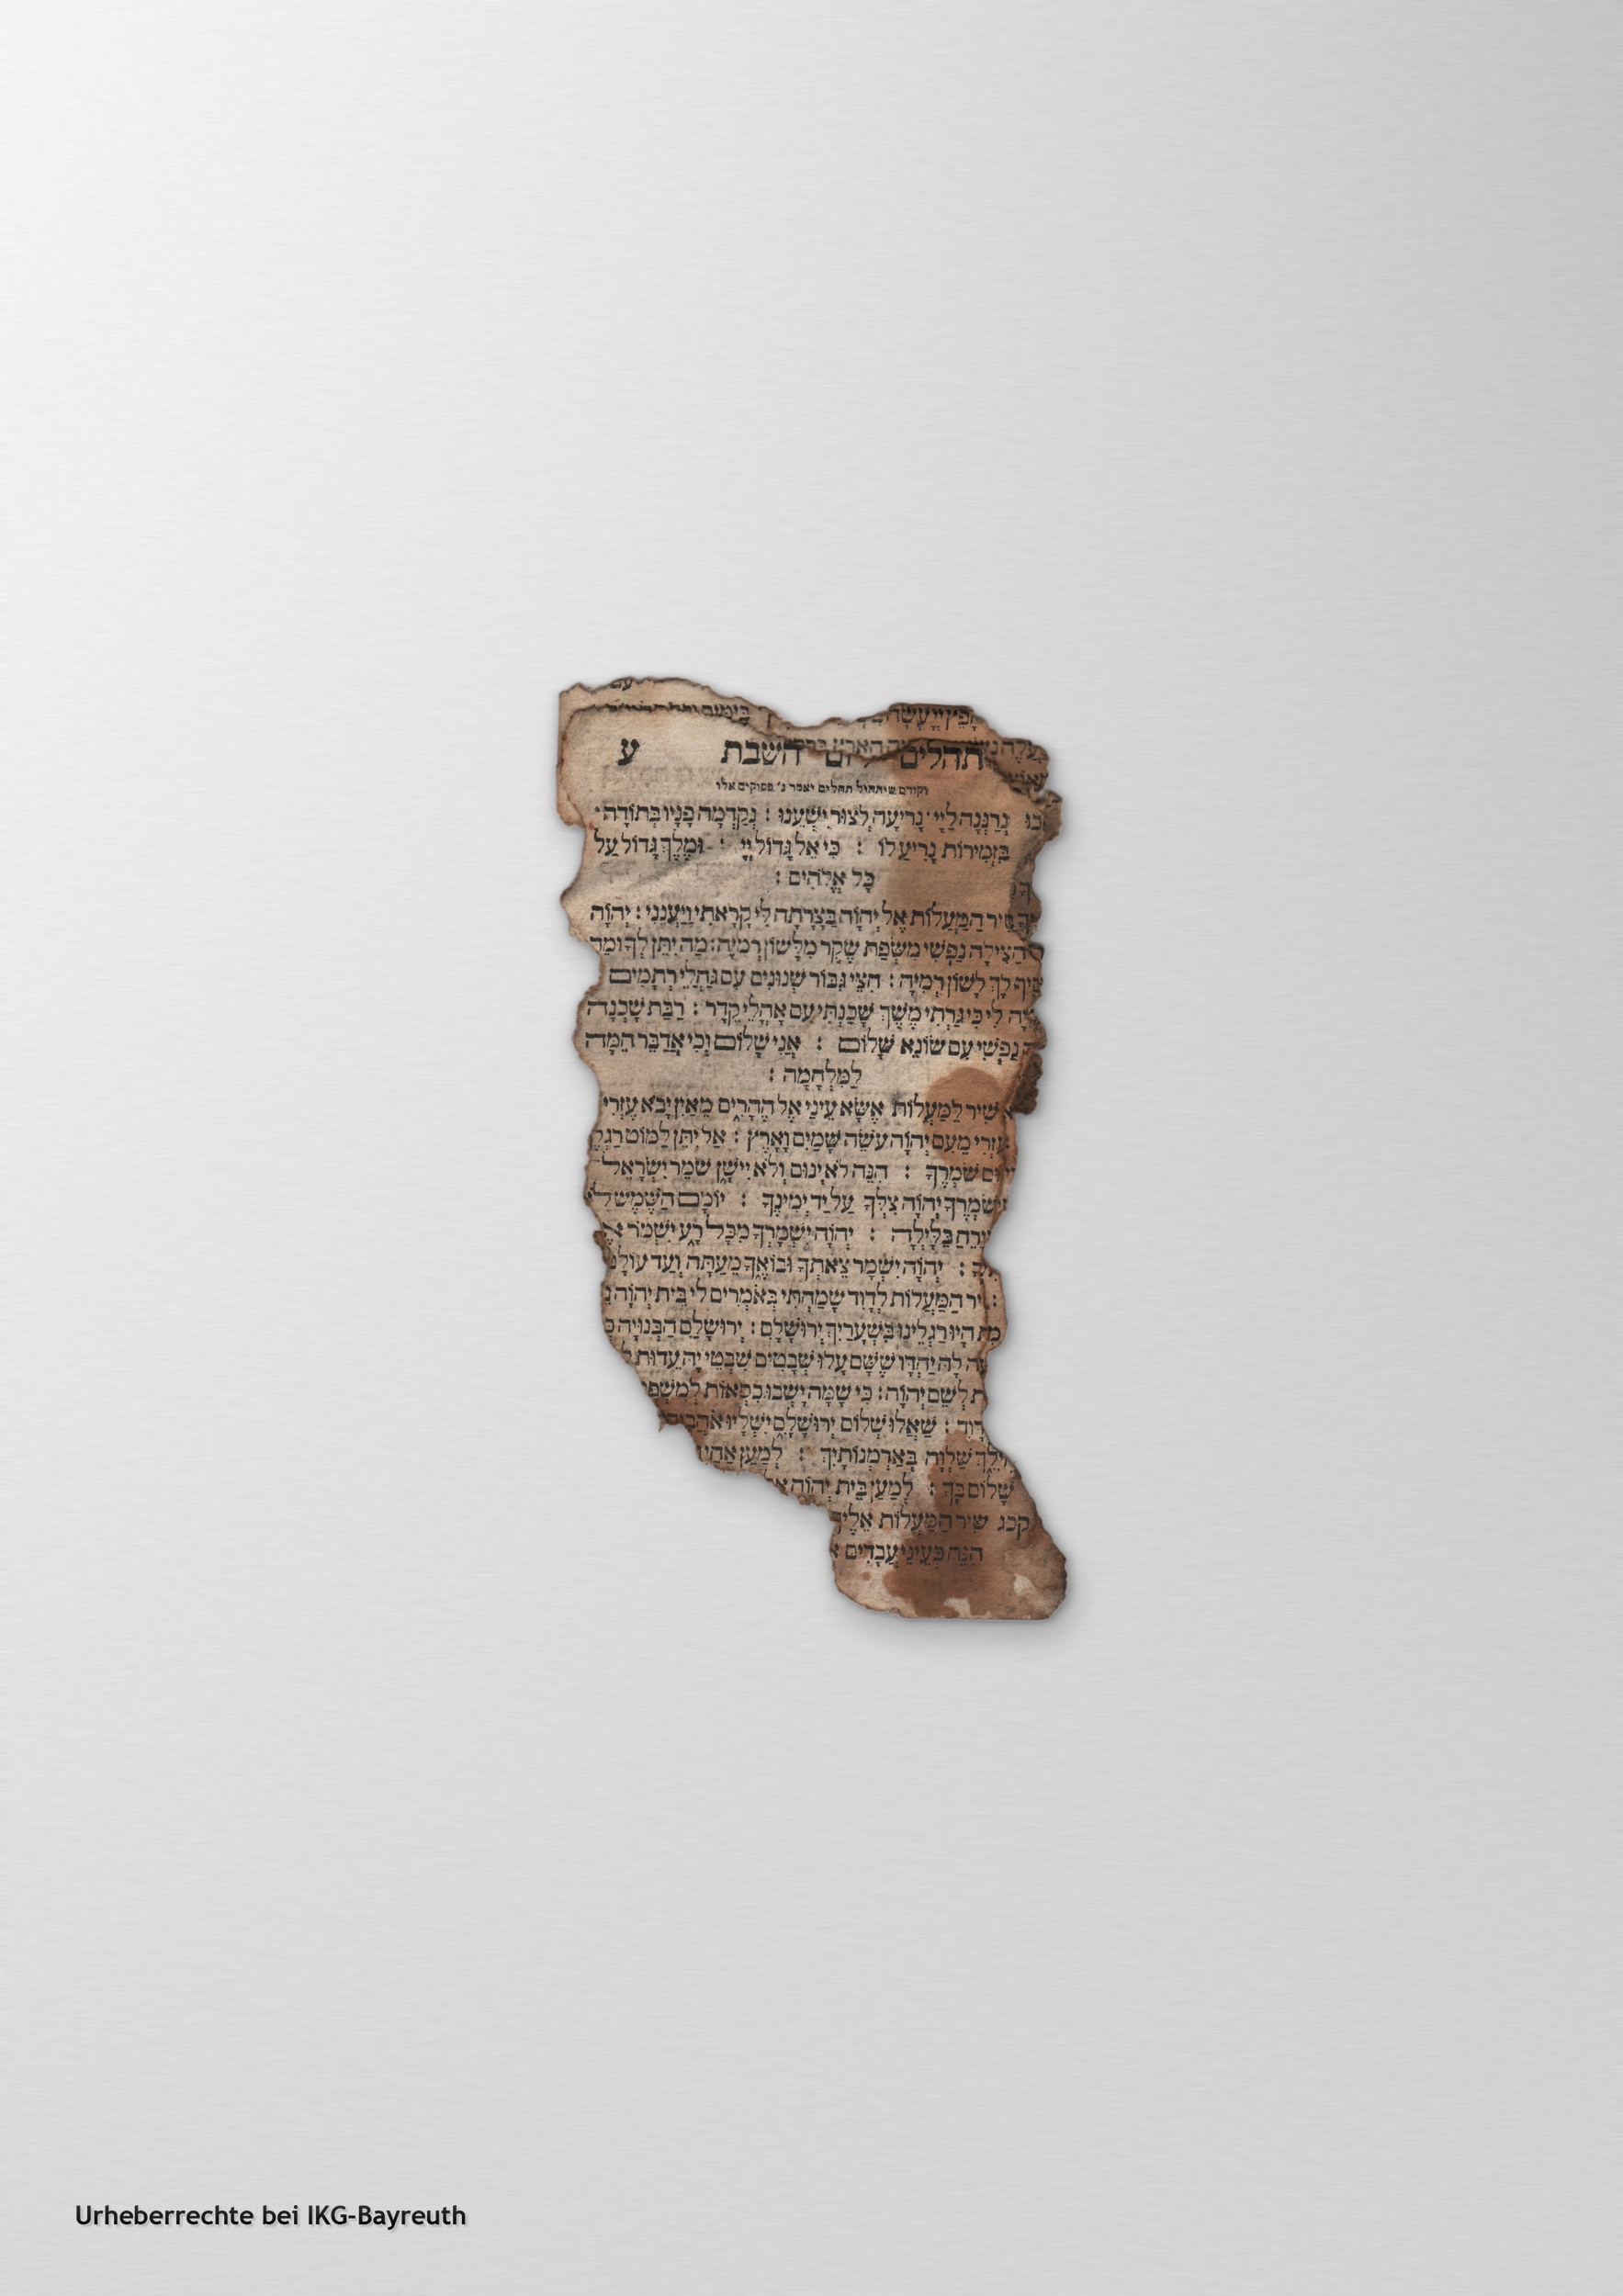 חָפֵץ יְיָ עָשָׂה
תהלים ליום השבת ע
וקודם שיתחיל תהלים יאמר ג׳ פסוקים אלו
נְרַנְּנָה לַיְיָ נָרִיעָה לְצוּר יִשְׁעֵנוּ : נְקַדְּמָה פָנָיו בְּתוֹדָה
בִּזְמִירוֹת נָרִיעַ לוֹ : כִּי אֵל גָּדוֹל יְיָ : וּמֶלֶךְ גָּדוֹל עַל
כָּל אֱלֹהִים :
שִׁיר הַמַּעֲלוֹת אֶל יְהוָֹה בַּצָּרָתָה לִּי קָרָאתִי וַיַּעֲנֵנִי : יְהוָֹה
הַצִּילָה נַפְשִׁי מִשְּׂפַת שֶׁקֶר מִלָּשׁוֹן רְמִיָּה : מַה יִּתֵּן לְךָ וּמַה
לָךְ לָשׁוֹן רְמִיָּה : חִצֵּי גִבּוֹר שְׁנוּנִים עִם גַּחֲלֵי רְתָמִים
לִי כִּי גַרְתִּי מֶשֶׁךְ שָׁכַנְתִּי עִם אָהֳלֵי קֵדָר : רַבַּת שָׁכְנָה
נַפְשִׁי עִם שׂוֹנֵא שָׁלוֹם : אֲנִי שָׁלוֹם וְכִי אֲדַבֵּר הֵמָּה
לַמִּלְחָמָה :
שִׁיר לַמַּעֲלוֹת אֶשָּׂא עֵינַי אֶל הֶהָרִים מֵאַיִן יָבֹא עֶזְרִי
עֶזְרִי מֵעִם יְהוָֹה עֹשֵׂה שָׁמַיִם וָאָרֶץ : אַל יִתֵּן לַמּוֹט רַגְלֶ
שֹׁמְרֶךָ : הִנֵּה לֹא יָנוּם וְלֹא יִישָׁן שֹׁמֵר יִשְׂרָאֵל
שֹׁמְרֶךָ יְהוָֹה צִלְּךָ עַל יַד יְמִינֶךָ : יוֹמָם הַשֶּׁמֶשׁ לֹא
וְיָרֵחַ בַּלָּיְלָה : יְהוָֹה יִשְׁמָרְךָ מִכָּל רָע יִשְׁמֹר אֶ
: יְהוָֹה יִשְׁמָר צֵאתְךָ וּבוֹאֶךָ מֵעַתָּה וְעַד עוֹלָם
שִׁיר הַמַּעֲלוֹת לְדָוִד שָׂמַחְתִּי בְּאֹמְרִים לִי בֵּית יְהוָֹה נֵ
הָיוּ רַגְלֵינוּ בִּשְׁעָרַיִךְ יְרוּשָׁלִָם : יְרוּשָׁלִַם הַבְּנוּיָה כְּ
לָהּ יַחְדָּו שֶׁשָּׁם עָלוּ שְׁבָטִים שִׁבְטֵי יָהּ עֵדוּת לְ
לְשֵׁם יְהוָֹה : כִּי שָׁמָּה יָשְׁבוּ כִסְאוֹת לְמִשְׁפָּ
דָּוִד : שַׁאֲלוּ שְׁלוֹם יְרוּשָׁלִָם יִשְׁלָיוּ אֹהֲבָיִךְ
שַׁלְוָה בְּאַרְמְנוֹתָיִךְ : לְמַעַן אַחַי
שָׁלוֹם בָּךְ : לְמַעַן בֵּית יְהוָֹה אֱ
קכג שִׁיר הַמַּעֲלוֹת אֵלֶיךָ
הִנֵּה כְעֵינֵי עֲבָדִים אֶ
Urheberrechte bei IKG-Bayreuth